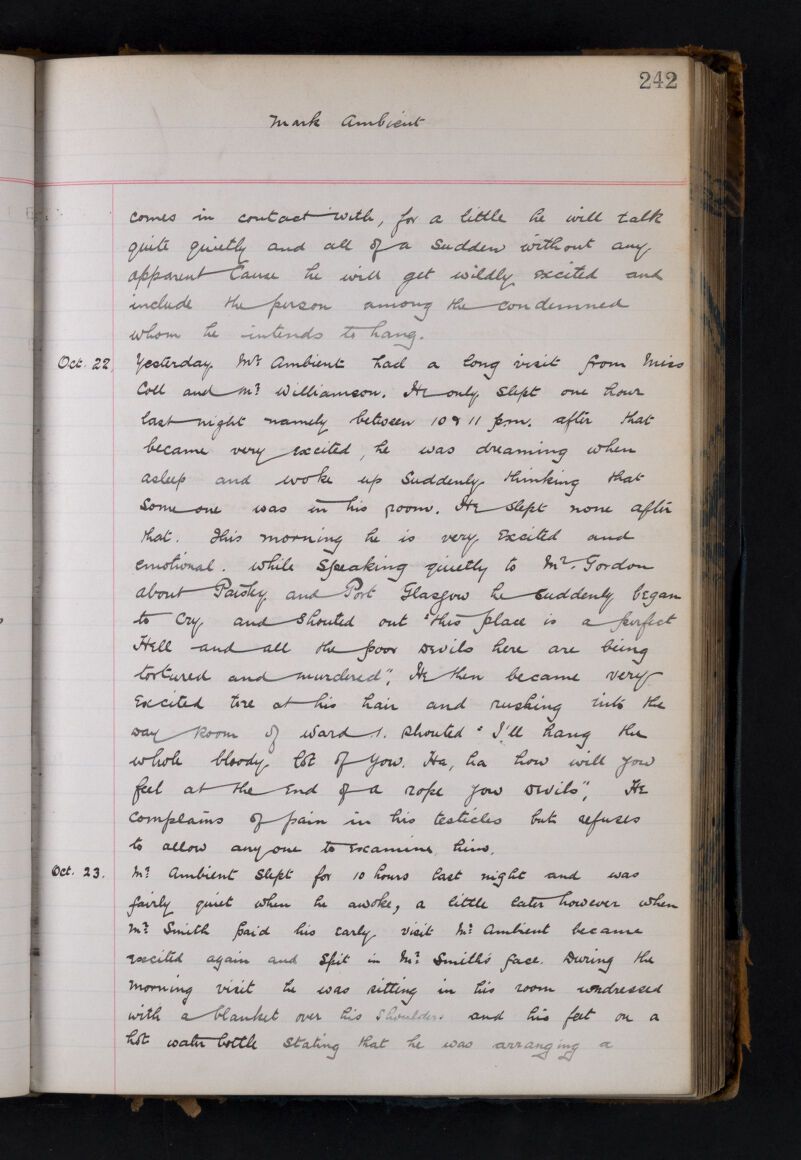 242
Mark Ambient
comes in contact with, for a little he will talk
quite quietly and all of a sudden without any
apparent cause he will get wildly excited and
include the person among the condemned
whom he intends to hang.
Oct. 22. Yesterday Mr Ambient had a long visit from Miss
Coll and Mr Williamson. He only slept one hour
last night namely between 10 & 11 p.m. after that
became very excited, he was dreaming when
asleep and woke up suddenly thinking that
some one was in his room. He slept none after
that. This morning he is very excited and
emotional. While speaking quietly to Mr. Gordon
about Paisley and Port Glasgow he suddenly began
to cry and shouted out "this place is a perfect
Hell and all the poor devils here are being
tortured and murdered". He then became very
excited tore at his hair and rushing into the
day room of ward 1. shouted "I'll hang the
whole bloody lot of you. Ha, ha how will you
feel at the end of a rope you devils". He
complains of pain in his testicles but refuses
to allow any one to examine him.
Oct. 23. Mr Ambient slept for 10 hours last night and was
fairly quiet when he awoke, a little later however when
Mr Smith paid his early visit Mr Ambient became
excited again and spit in Mr Smith's face. During the
morning visit he was sitting in his room undressed
with a blanket over his shoulders and his feet on a
hot water bottle stating that he was arranging a